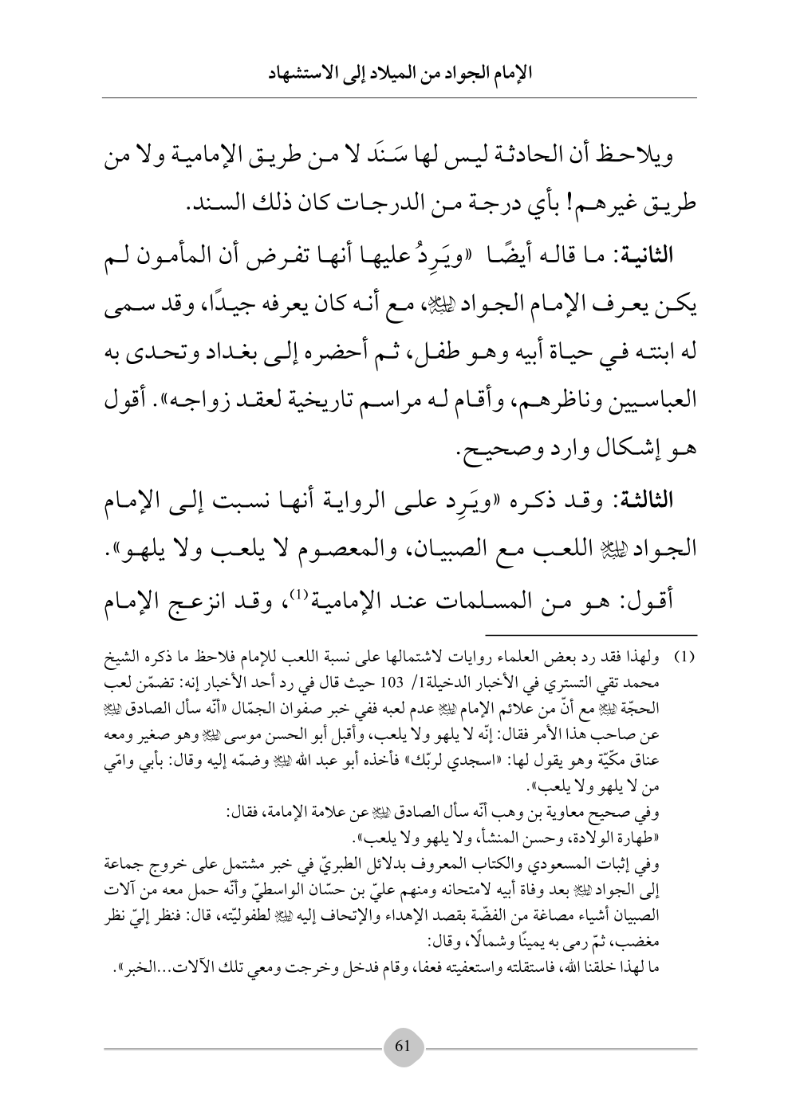 الإمام الجواد من الميلاد إلى الاستشهاد
ويلاحظ أن الحادثة ليس لها سَنَد لا من طريق الإمامية ولا من
طريق غيرهم! بأي درجة من الدرجات كان ذلك السند.
الثانية: ما قاله أيضًا «ويَرِدُ عليها أنها تفرض أن المأمون لم
يكن يعرف الإمام الجواد عليه السلام، مع أنه كان يعرفه جيدًا، وقد سمى
له ابنته في حياة أبيه وهو طفل، ثم أحضره إلى بغداد وتحدى به
العباسيين وناظرهم، وأقام له مراسم تاريخية لعقد زواجه». أقول
هو إشكال وارد وصحيح.
الثالثة: وقد ذكره «ويَرِد على الرواية أنها نسبت إلى الإمام
الجواد عليه السلام اللعب مع الصبيان، والمعصوم لا يلعب ولا يلهو».
أقول: هو من المسلمات عند الإمامية(1)، وقد انزعج الإمام
(1) ولهذا فقد رد بعض العلماء روايات لاشتمالها على نسبة اللعب للإمام فلاحظ ما ذكره الشيخ
محمد تقي التستري في الأخبار الدخيلة1/ 103 حيث قال في رد أحد الأخبار إنه: تضمّن لعب
الحجّة عليه السلام مع أنّ من علائم الإمام عليه السلام عدم لعبه ففي خبر صفوان الجمّال «أنّه سأل الصادق عليه السلام
عن صاحب هذا الأمر فقال: إنّه لا يلهو ولا يلعب، وأقبل أبو الحسن موسى عليه السلام وهو صغير ومعه
عناق مكّيّة وهو يقول لها: «اسجدي لربّك» فأخذه أبو عبد الله عليه السلام وضمّه إليه وقال: بأبي وامّي
من لا يلهو ولا يلعب».
وفي صحيح معاوية بن وهب أنّه سأل الصادق عليه السلام عن علامة الإمامة، فقال:
«طهارة الولادة، وحسن المنشأ، ولا يلهو ولا يلعب».
وفي إثبات المسعودي والكتاب المعروف بدلائل الطبريّ في خبر مشتمل على خروج جماعة
إلى الجواد عليه السلام بعد وفاة أبيه لامتحانه ومنهم عليّ بن حسّان الواسطيّ وأنّه حمل معه من آلات
الصبيان أشياء مصاغة من الفضّة بقصد الإهداء والإتحاف إليه عليه السلام لطفوليّته، قال: فنظر إليّ نظر
مغضب، ثمّ رمى به يمينًا وشمالًا، وقال:
ما لهذا خلقنا الله، فاستقلته واستعفيته فعفا، وقام فدخل وخرجت ومعي تلك الآلات...الخبر».
61